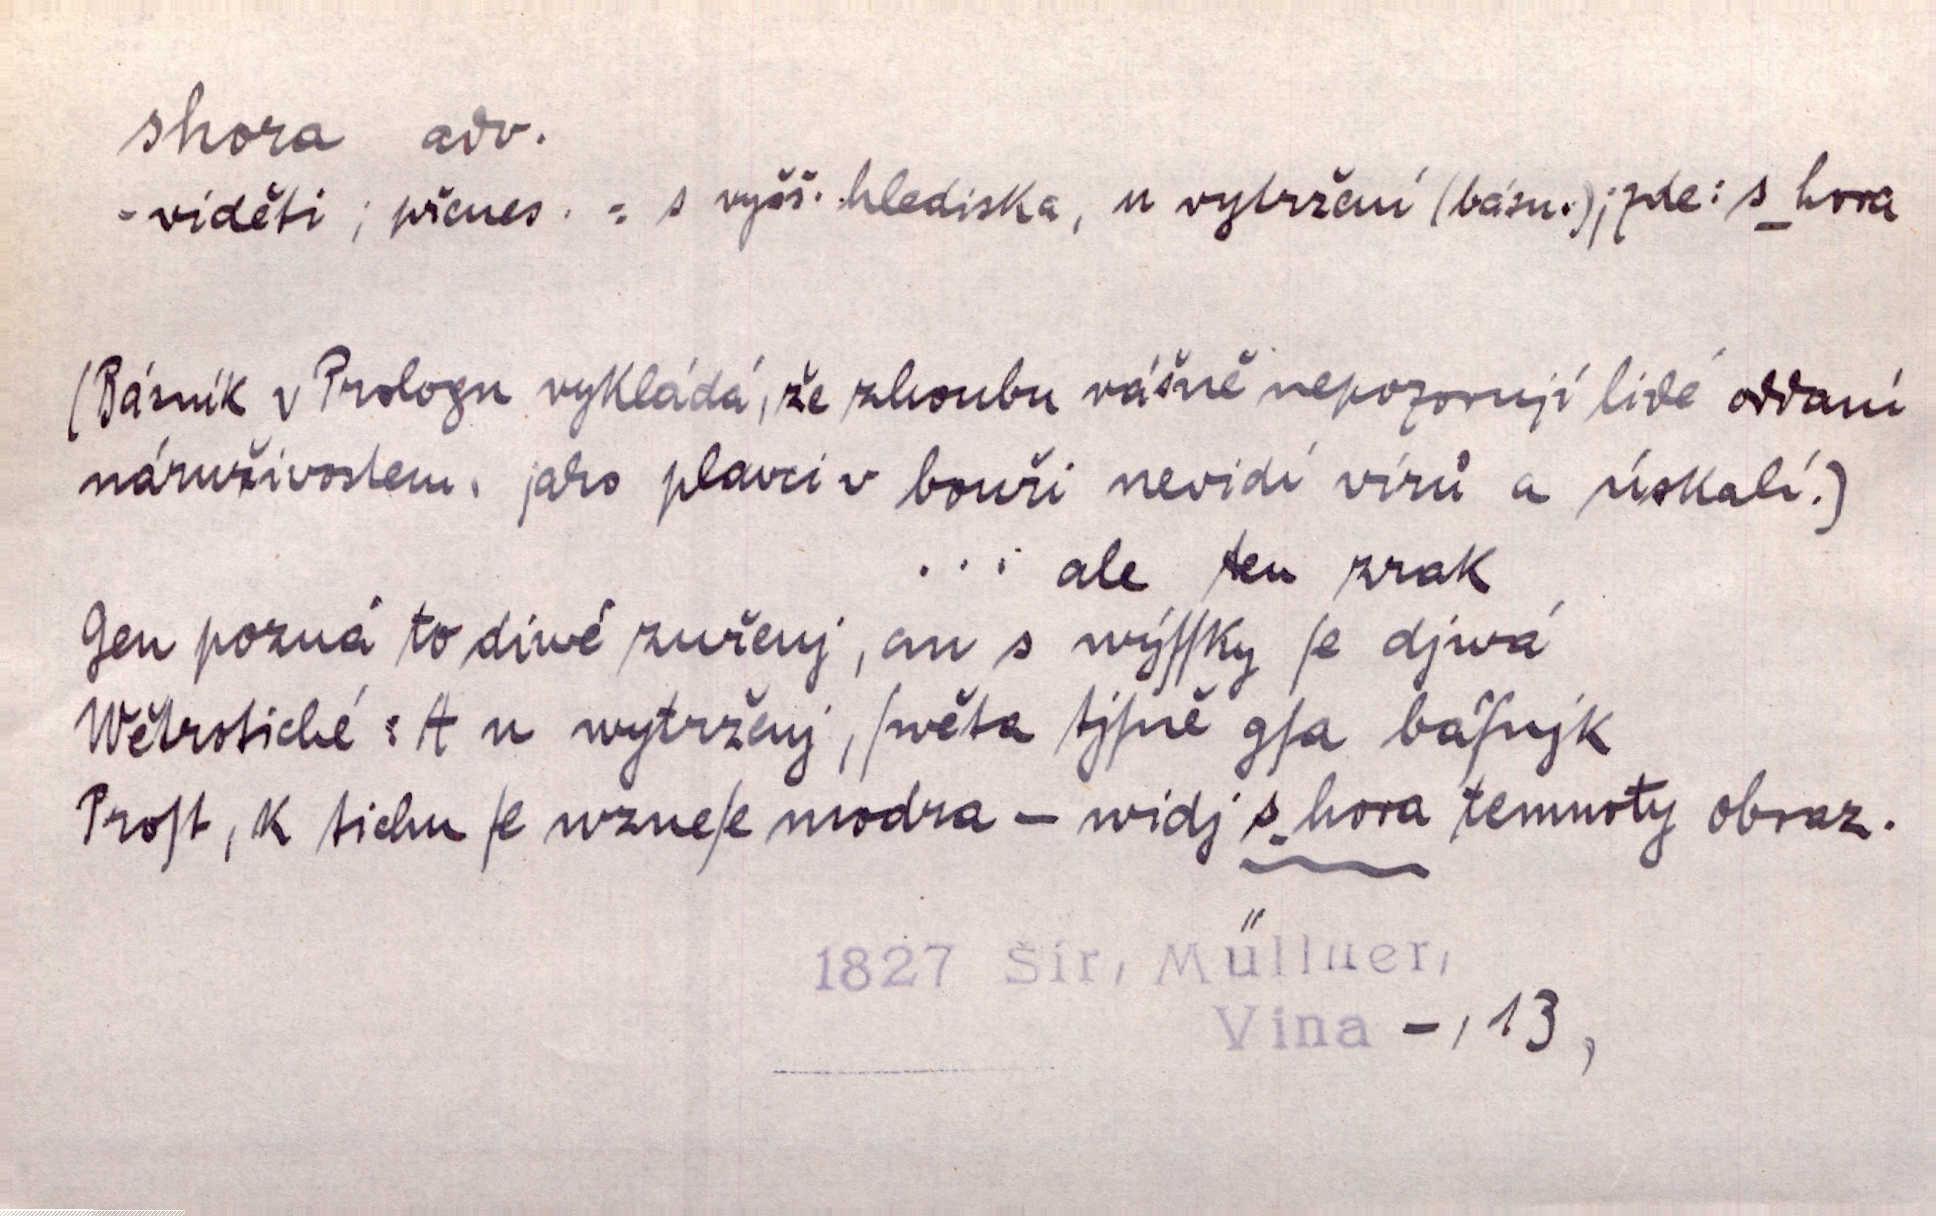 shora adv.
- viděti ; přenes. = s vyšš. hlediska, u vytržení (básn.); zde: s_hora
(Básník v Prologu vykládá, že zhoubu vášně nepozorují lidé oddaní
náruživostem. jako plavci v bouři nevidí vírů a úskalí.)
... ale ten zrak
Gen pozná to diwé zuřenj, an s wýſſky ſe djwá
Wětrotiché : A u wytrženj, ſwěta tjſně gſa báſnjk
Proſt, k tichu ſe wzneſe modra – widj s_hora temnoty obraz.
1827 Šír, Müllner,
Vina -, 13,